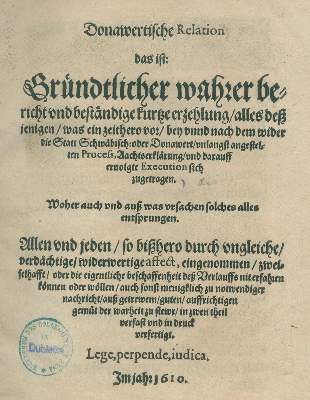 Donawertische Relation
das ist:
Gründtlicher wahrer be-
richt vnd beständige kurtze erzehlung/ alles deß
jenigen/ was ein zeithero vor/ bey vnnd nach dem wider
die Statt Schwäbisch: oder Donawert/ vnlangst angestel-
ten Process, Aachtserklärung/ vnd darauff
eruolgte Execution sich
zugetragen.
Woher auch vnd auß was vrsachen solches alles
entsprungen.
Allen vnd jeden/ so bißhero durch vngleiche/
verdächtige/ widerwertige affect, eingenommen/ zwei-
felhafft/ oder die eigentliche beschaffenheit deß Verlauffs nit erfahren
können oder wöllen/ auch sonst menigklich zu notwendiger
nachricht/ auß getrewem/ guten/ auffrichtigen
gemüt der warheit zu stewr/ in zwen theil
verfast vnd in druck
verfertigt.
Lege, perpende, iudica.
Im jahr 1610.